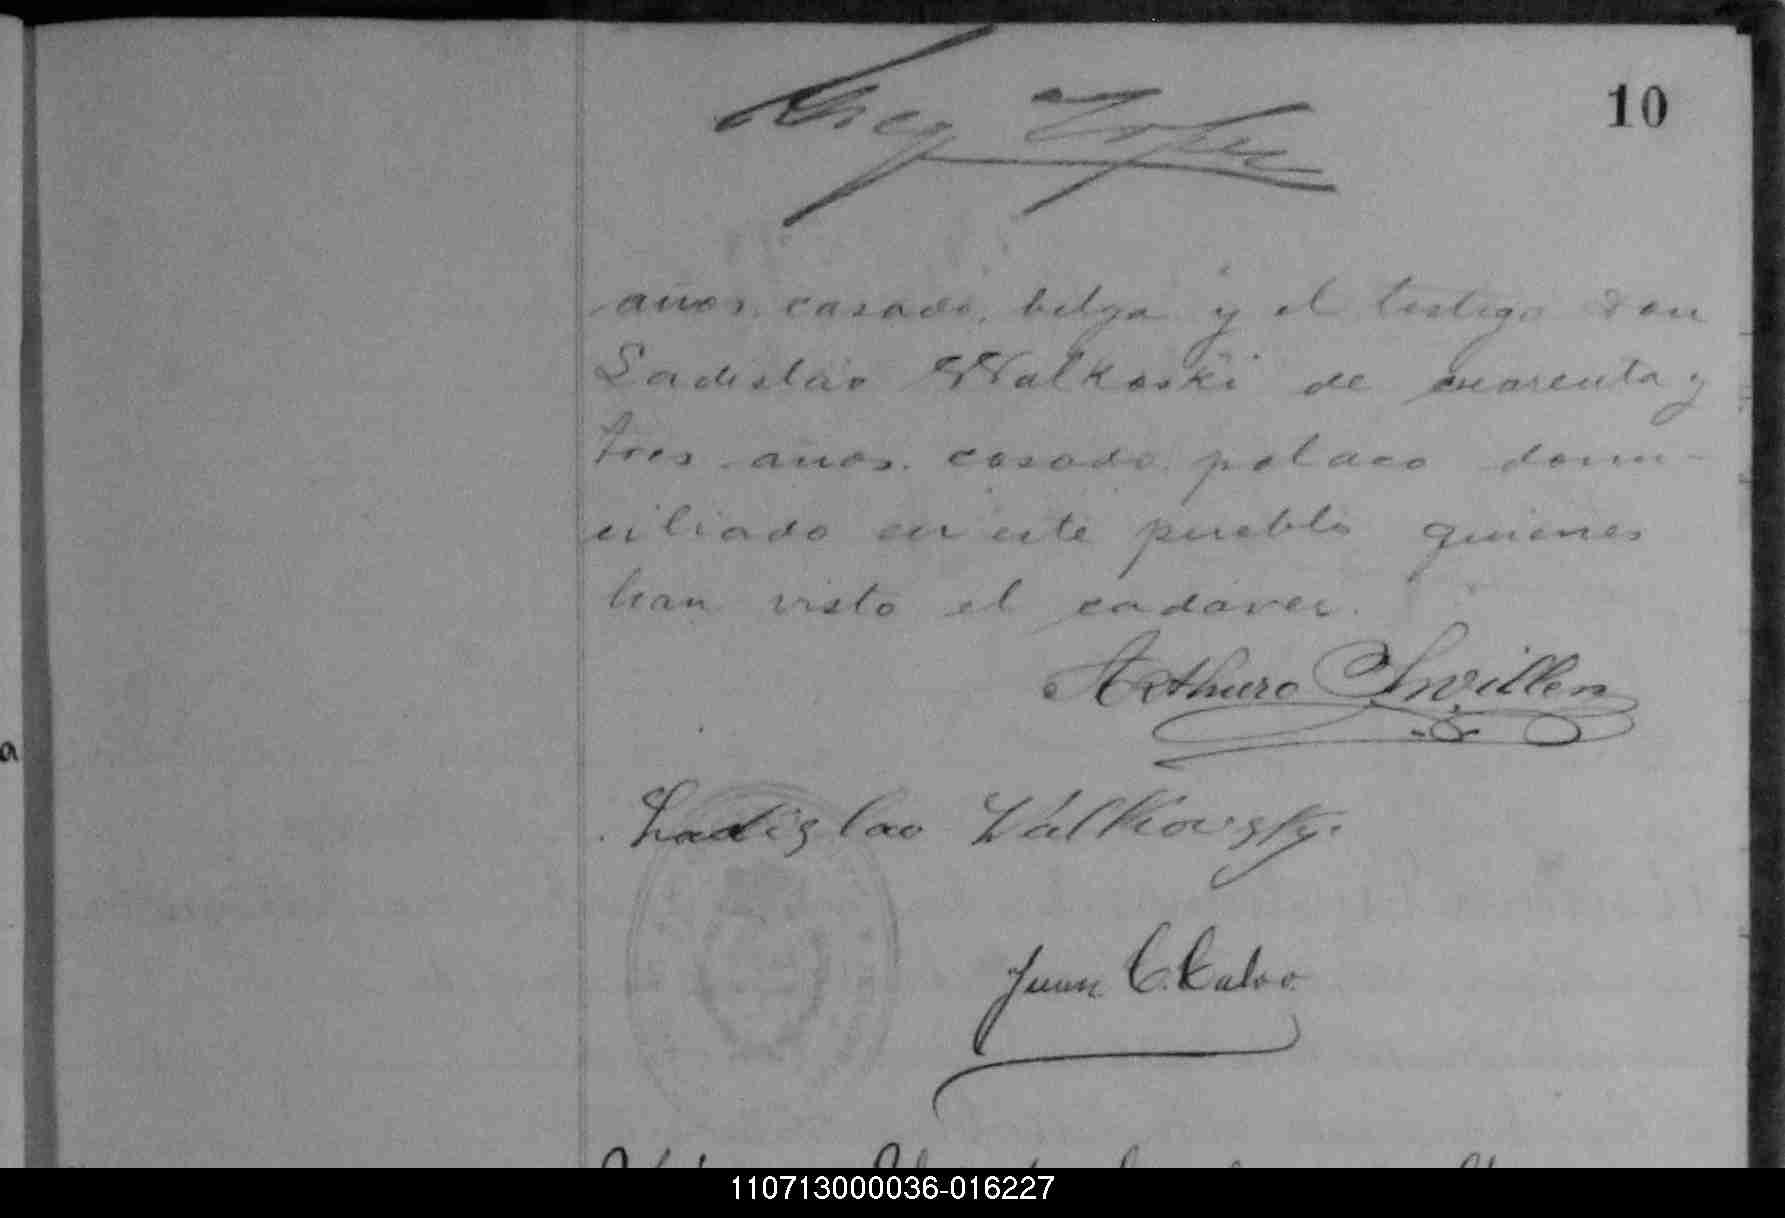 10
años, casado, belga y el testigo Don
Ladislao Walkoski de cuarenta y
tres años. casado. polaco domi-
ciliado en este pueblo quienes
han visto el cadaver.
Arthuro
Ladizlao Walkowsky.
Juan C. Calvo
110713000036-016227